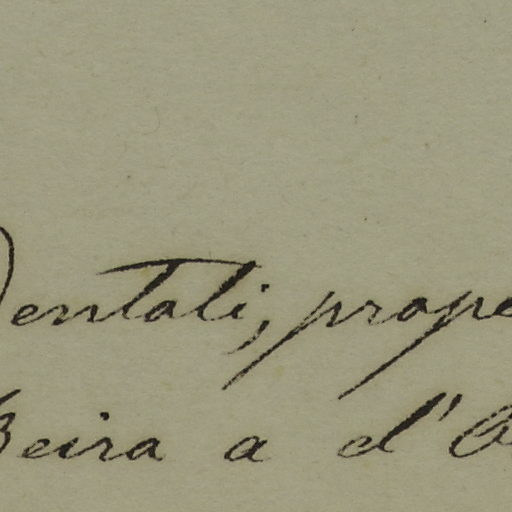 dentali, prope
Beira a d'